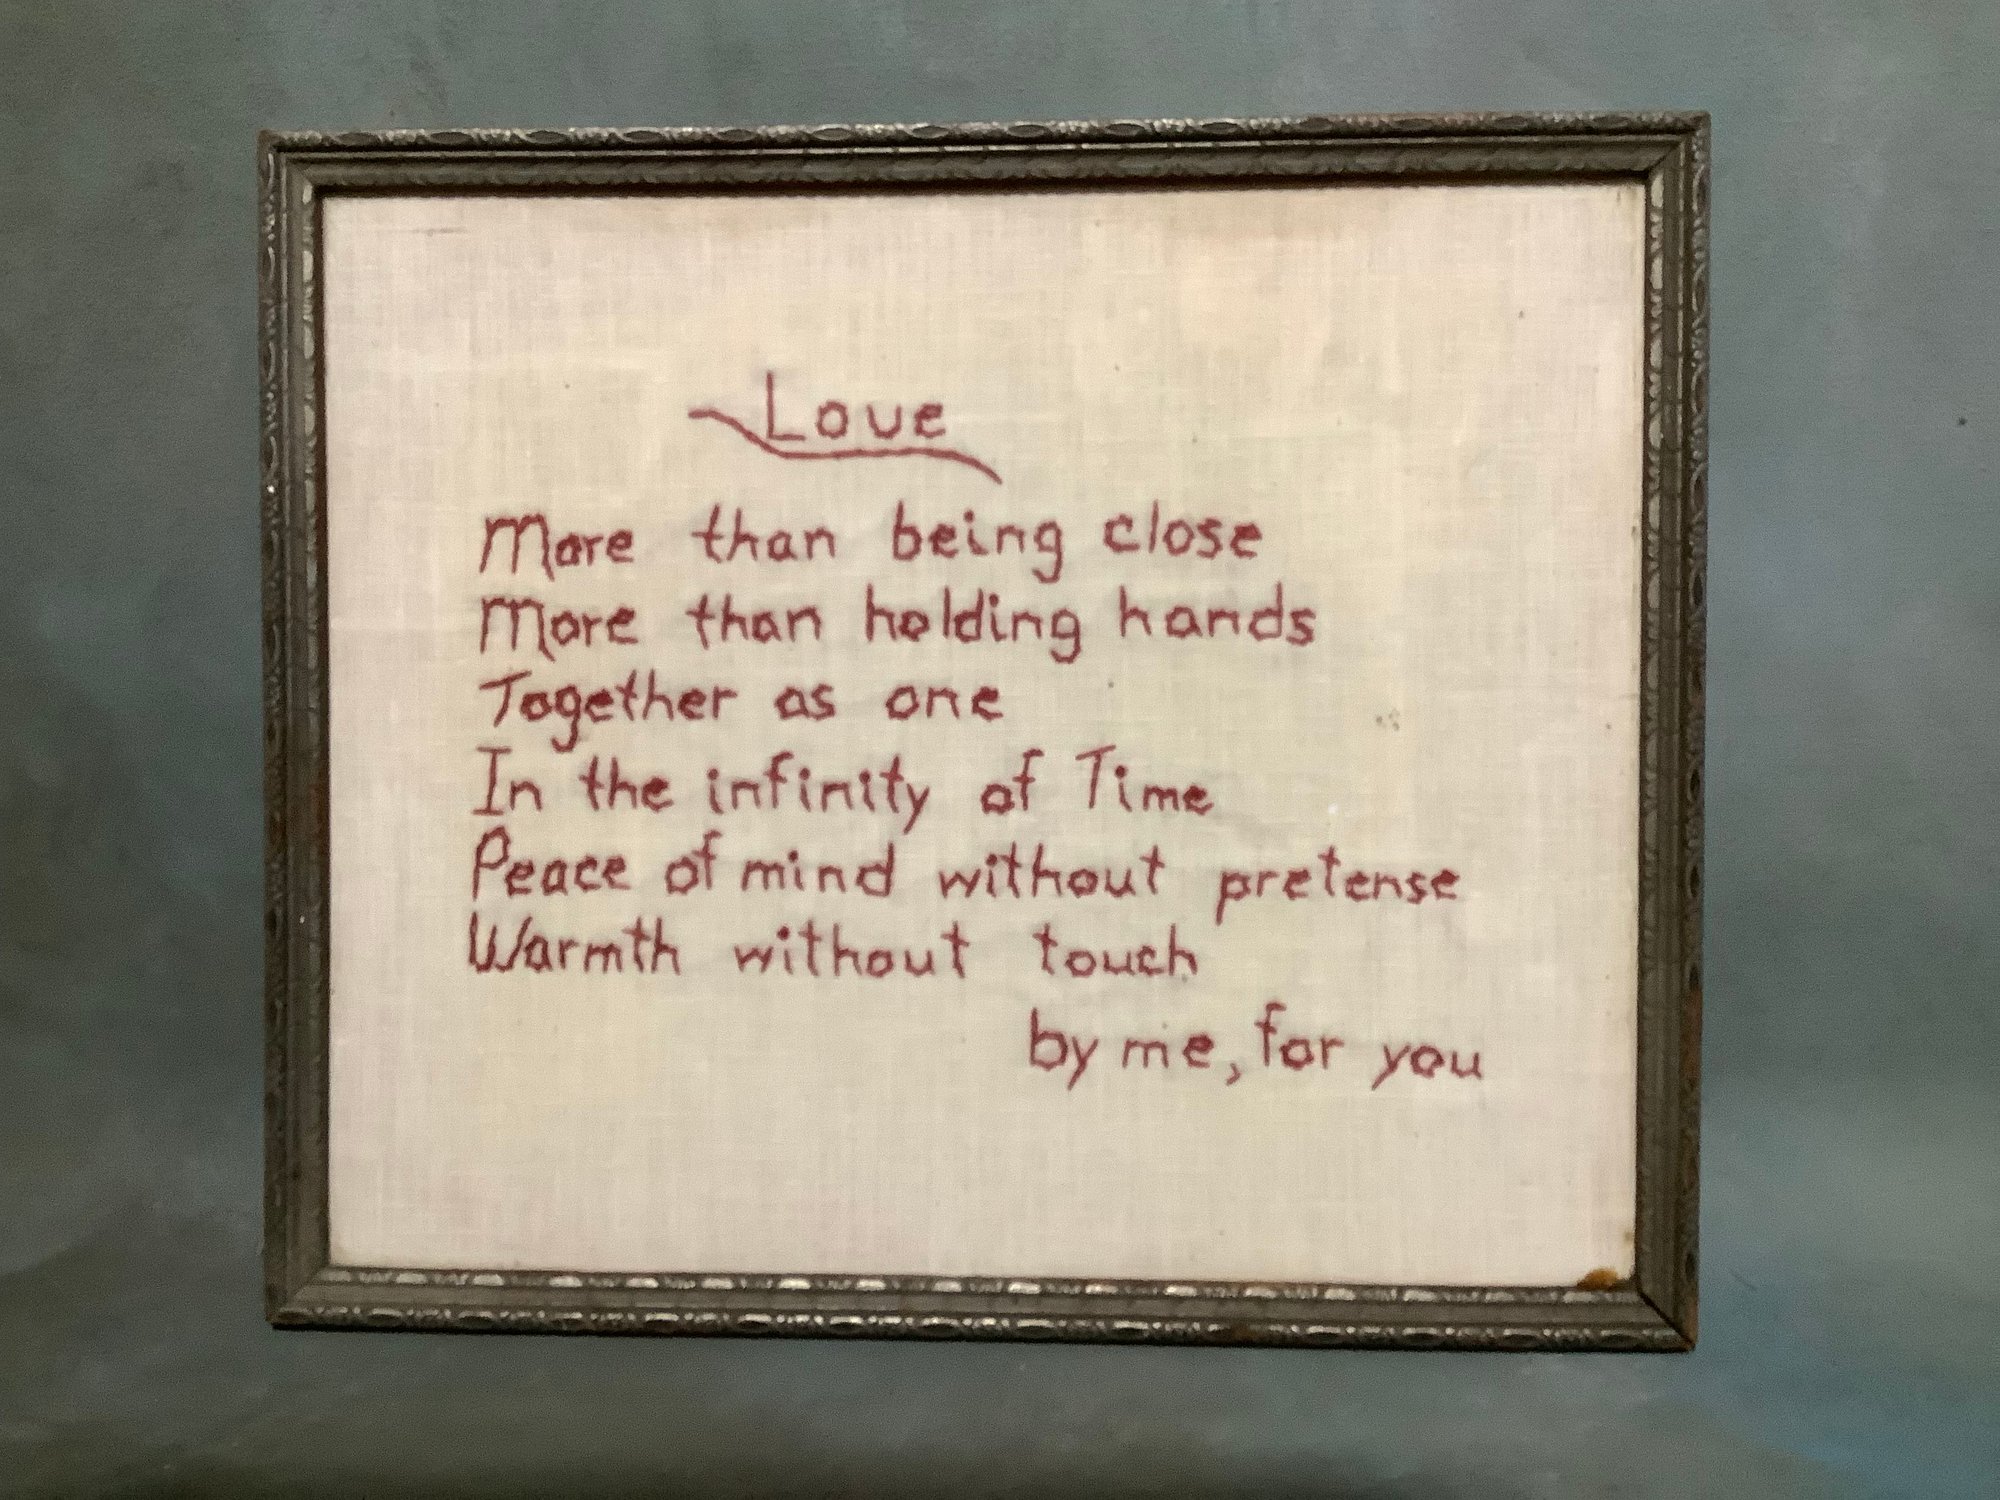 Love
More than being close
More than holding hands
Together as one
In the infinity of Time
Peace of mind without pretense
Warmth without touch
by me, for you